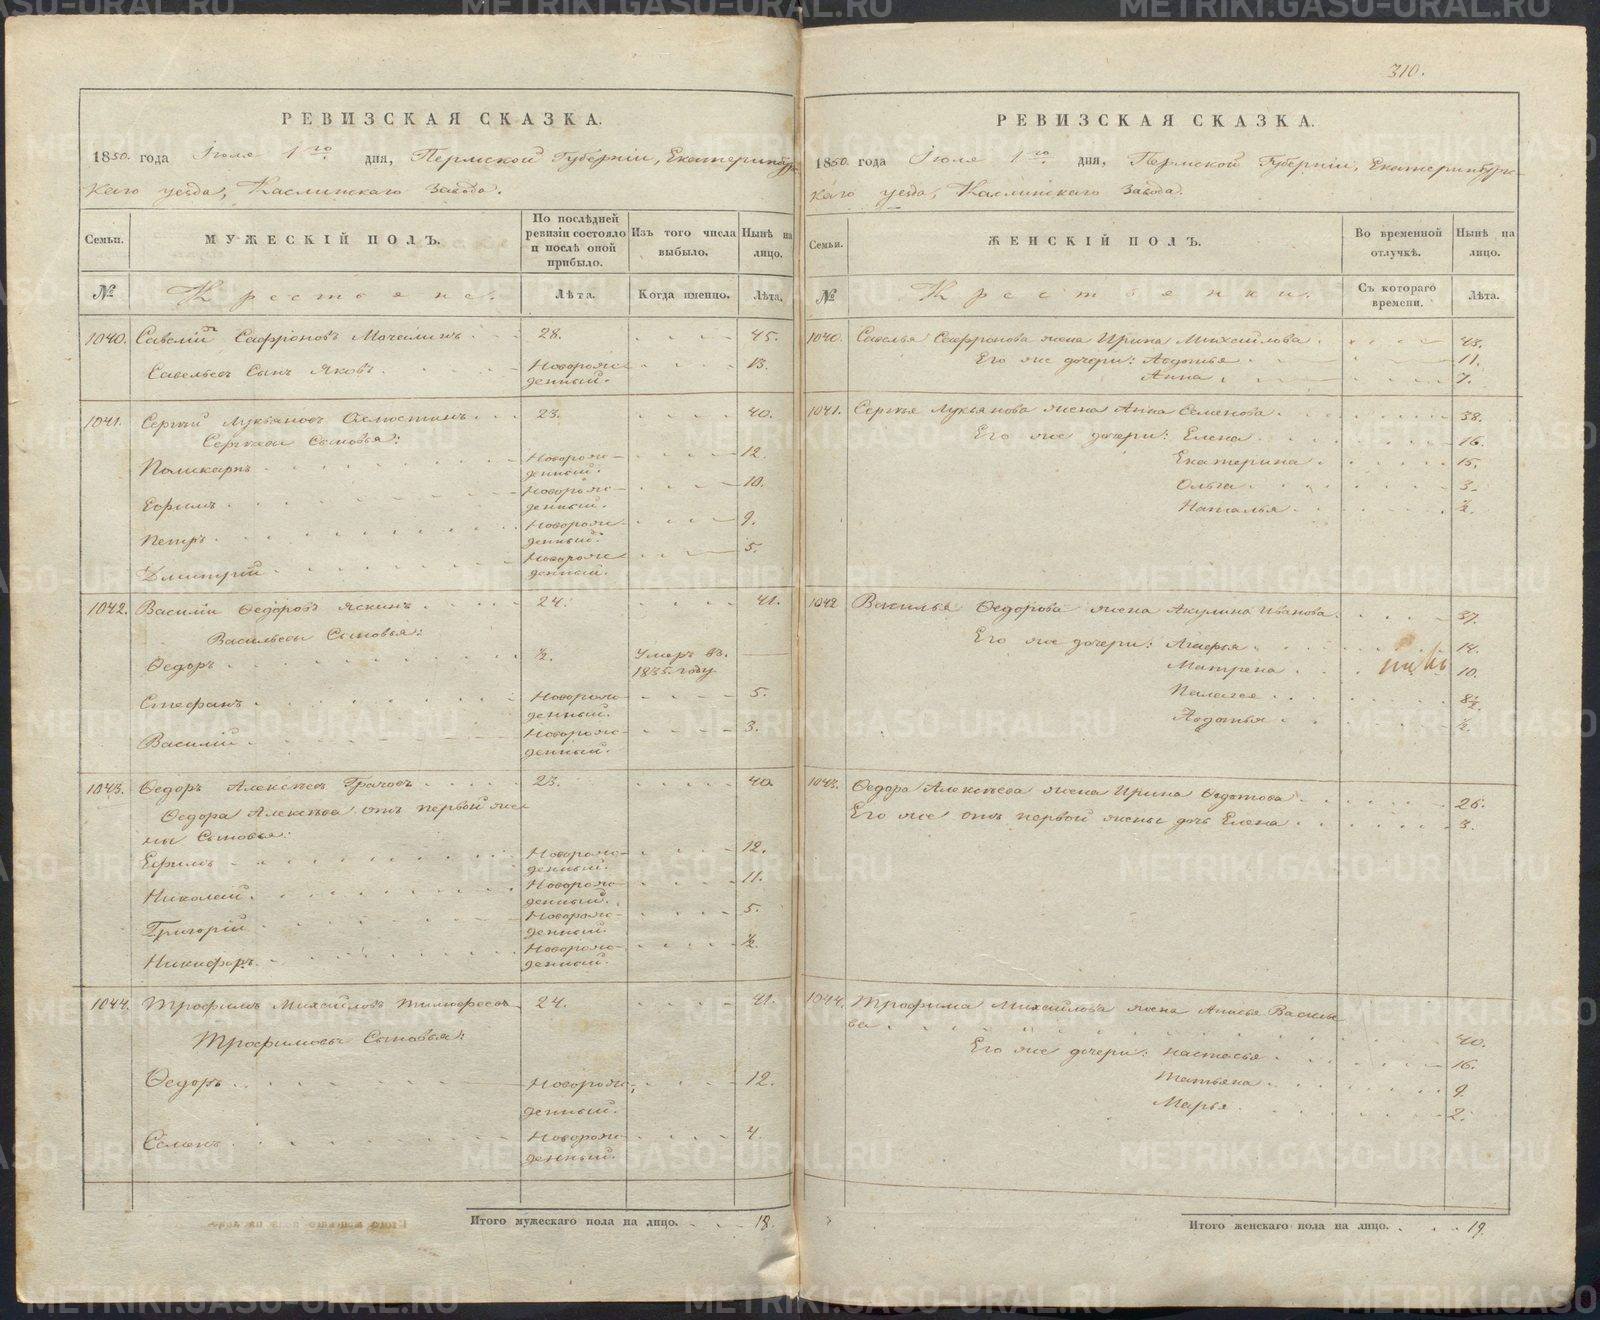 310.
РЕВИЗСКАЯ СКАЗКА.
1850. года Іюля 1го дня, Пермской Губерніи, Екатеринбург-
скаго уезда, Каслинскаго Завода.
Семьи. МУЖЕСКІЙ ПОЛЪ. По послѣдней ревизіи состояло и послѣ оной прибыло. Изъ того числа выбыло. Нынѣ на лицо.
№ Крестьяне. Лѣта. Когда именно. Лѣта.
1040. Савелій Сафроновъ Мочалинъ 28. 45.
Савельевъ Сынъ Яковъ. Новорожденный. 13.
1041. Сергѣй Лукьяновъ 23. 40.
Сергѣевы Сыновья:
Поликарпъ Новорожденный. 12.
Ефимъ Новорожденный. 10.
Петръ Новорожденный. 9.
Дмитрій Новорожденный. 5.
1042. Василій Ѳедоровъ Яскинъ 24. 41.
Васильевы Сыновья:
Ѳедоръ ½. Умеръ въ 1835 году
Стефанъ Новорожденный. 5.
Василій Новорожденный. 3.
1043. Ѳедоръ Алексѣевъ Грачовъ 23. 40
Ѳедора Алексѣева отъ первой же-
ны Сыновья:
Ефимъ Новорожденный. 12.
Николай Новорожденный. 11.
Григорій Новорожденный. 5.
Никифоръ Новорожденный. ½.
1044. Трофимъ Михайловъ 24. 41.
Трофимовы Сыновья:
Ѳедоръ Новорожденный. 12.
Семенъ Новорожденный. 4.
Итого мужескаго пола на лицо. 18.
РЕВИЗСКАЯ СКАЗКА.
1850. года Іюля 1го дня, Пермской Губерніи, Екатеринбургс-
каго уезда, Каслинскаго Завода.
Семьи. ЖЕНСКІЙ ПОЛЪ. Во временной отлучкѣ. Нынѣ на лицо.
№ Крестьянки. Съ котораго времени. Лѣта.
1040. Савелья Сафронова жена Ирина Михайлова 43.
Его же дочери: Авдотья 11.
Анна 7.
1041. Сергѣя Лукьянова жена Анна Семенова 38.
Его же дочери: Елена 16.
Екатерина 15.
Ольга 3.
Наталья ½.
1042 Василья Ѳедорова жена Акулина Иванова. 37.
Его же дочери: Агафья 14.
Матрена 10.
Пелагея 8½.
Авдотья ½.
1043. Ѳедора Алексѣева жена Ирина Ѳедотова 26.
Его же отъ первой жены дочь Елена 3.
1044. Трофима Михайлова жена Анисья Василье
ва 40.
Его же дочери: Настасья 16.
Татьяна 9
Марья 2.
Итого женскаго пола на лицо. 19.
METRIKI.GASO-URAL.RU